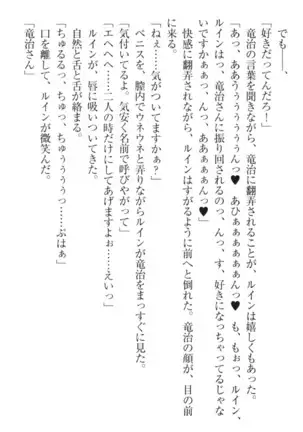 でも――、
「好きだってんだろ！」
竜治の言葉を聞きながら、竜治に翻弄されることが、ルインは嬉しくもあった。
「あっ、ああぅうぅぅぅんっ♥　あひぁぁぁぁぁんっ♥　も、もぉっ、ルイン、
ルインはっ、竜治さんに振り回されるの、んっ、す、好きになっちゃってるじゃな
いですかぁぁっ、んっ、ああぁぁぁぁんっ♥」
快感に翻弄されながら、ルインはすがるように前へと倒れた。竜治の顔が、目の前
に来る。
「ねぇ……気がついてますかぁ？」
ペニスを、膣内でウネウネと弄りながらルインが竜治をまっすぐに見た。
「気付いてるよ。気安く名前で呼びやがって」
「エヘヘ……二人の時だけにしてあげますよぉ……えいっ」
ルインが、唇に吸いついてきた。
自然と舌と舌が絡まる。
「ちゅるるっ、ちゅっ、ちゅぅぅぅぅっ……ぷはぁ」
口を離して、ルインが微笑んだ。
「竜治さん」